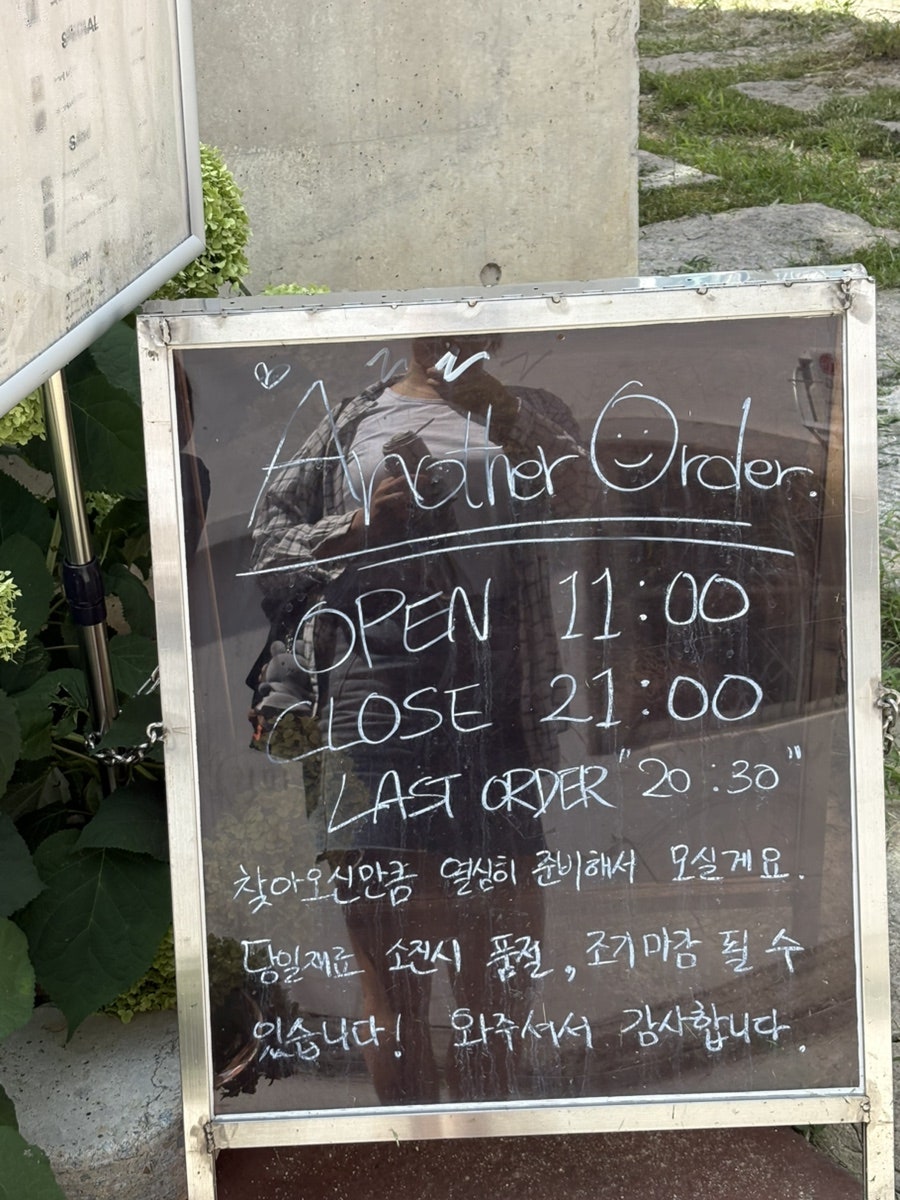 Another Order.
OPEN 11:00
CLOSE 21:00
LAST ORDER "20:30"
찾아오신만큼 열심히 준비해서 모실게요.
당일재료 소진시 품절, 조기마감 될 수
있습니다! 와주셔서 감사합니다.